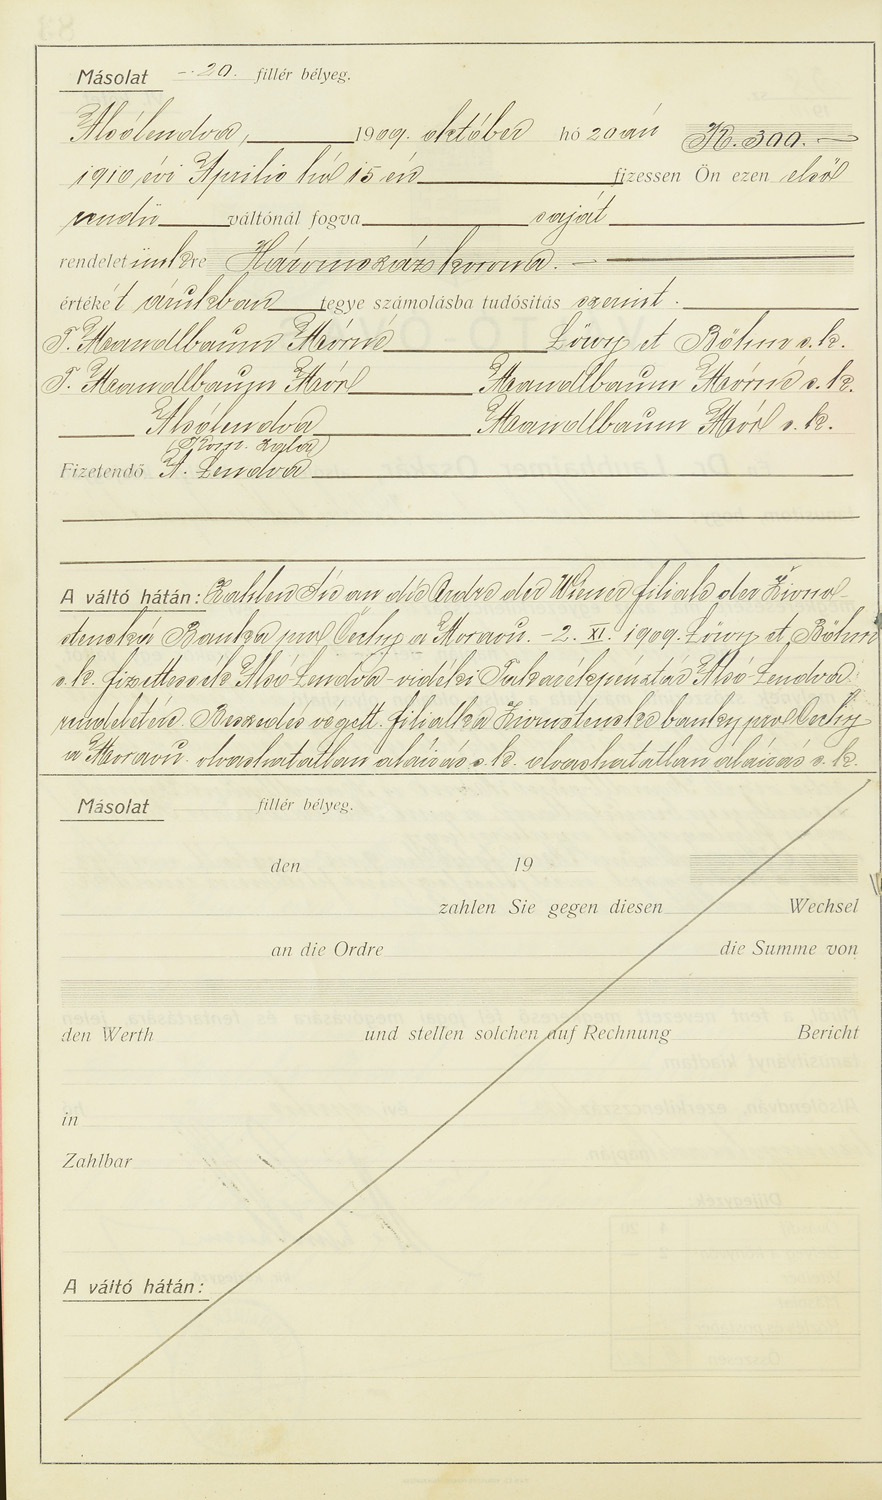 Másolat -.20. fillér bélyeg.
Alsólendva, 1909. október hó 20án K. 300.—
1910 évi Április hó 15 én fizessen Ön ezen első
rendű váltónál fogva saját
rendeletünkre Háromszáz korona. —
értékét árukban tegye számolásba tudósitás szerint.
T. Mandlbaum Mórné Löwy et Böhm s. k.
T. Mandlbaum Mór Mandlbaum Mórné s. k.
Alsólendva Mandlbaum Mór s. k.
Fizetendő A. Lendva
A váltó hátán: Zahlen Sie an die Ordre der Wiener filiale der Živno-
denská Banka pro Čechy a Moravu. - 2. XI. 1909. Löwy et Böhm
s. k. fizettessék Alsó-Lendva-vidéki Takarékpénztár Alsó-Lendva
rendeletére Beszedés végett. filialka Živnostenske banky pro Čechy
a Moravu. olvashatatlan aláirás s. k. olvashatatlan aláirás s. k.
Másolat fillér bélyeg.
den 19
zahlen Sie gegen diesen Wechsel
an die Ordre die Summe von
den Werth und stellen solchen auf Rechnung Bericht
in
Zahlbar
A váltó hátán: